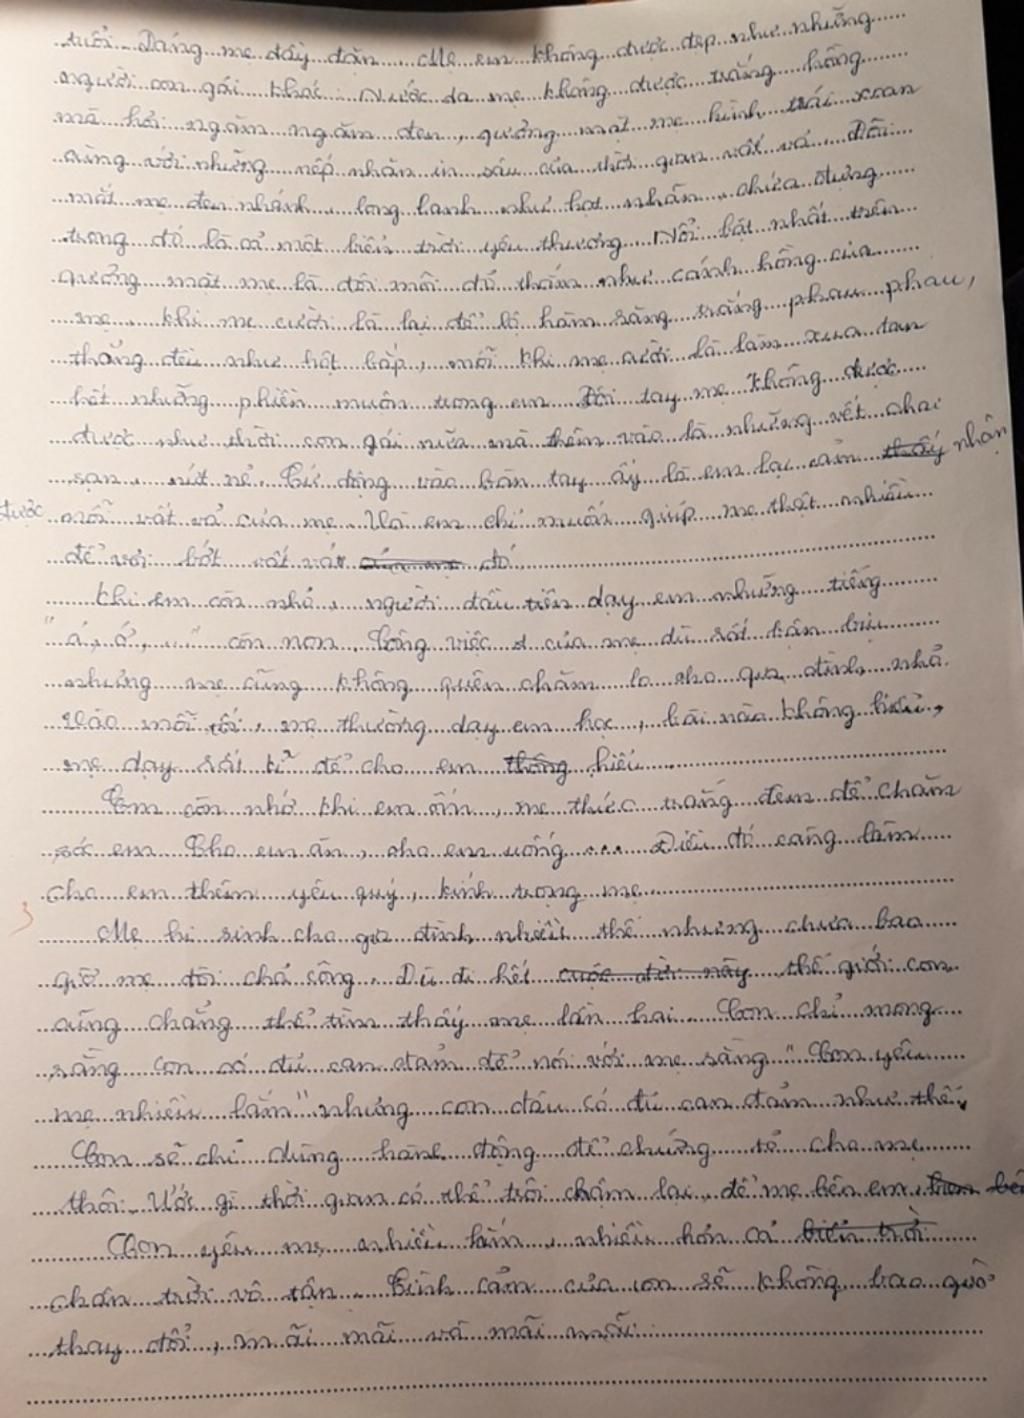 tuổi. Dáng mẹ đầy đặn. Mẹ em không được đẹp như những
người con gái khác. Nước da mẹ không được trắng hồng
mà hơi ngăm ngăm đen, gương mặt mẹ hình trái xoan
cùng với những nếp nhăn in sâu của thời gian vất vả. Đôi
mắt mẹ đen nhánh, long lanh như hạt nhãn, chứa đựng
trong đó là cả một biển trời yêu thương. Nổi bật nhất trên
gương mặt mẹ là đôi môi đỏ thắm như cánh hồng của
mẹ, khi mẹ cười là lại để lộ hàm răng trắng phau phau,
thẳng đều như hột bắp, mỗi khi mẹ cười là làm xua tan
hết những phiền muộn trong em. Đôi tay mẹ không được
được như thời con gái nữa mà thêm vào là những vết chai
sạn, nứt nẻ. Cứ động vào bàn tay ấy là em lại cảm thấy nhận
được nỗi vất vả của mẹ. Và em chỉ muốn giúp mẹ thật nhiều
để vơi bớt vất vả đó.
Khi em còn nhỏ, người đầu tiên dạy em những tiếng
"á, ớ, ..." còn non. Công việc của mẹ dù rất bận bịu
nhưng mẹ cũng không quên chăm lo cho gia đình nhỏ.
Vào mỗi tối, mẹ thường dạy em học, bài nào không hiểu,
mẹ dạy rất kĩ để cho em thông hiểu.
Em còn nhớ khi em ốm, mẹ thức trắng đêm để chăm
sóc em. Cho em ăn, cho em uống ... Điều đó càng làm
cho em thêm yêu quý, kính trọng mẹ.
Mẹ hi sinh cho gia đình nhiều thế nhưng chưa bao
giờ mẹ đòi chả công. Dù đi hết cuộc đời này thế giới con
cũng chẳng thể tìm thấy mẹ lần hai. Con chỉ mong
rằng con có đủ can đảm để nói với mẹ rằng "Con yêu
mẹ nhiều lắm" nhưng con đâu có đủ can đảm như thế,
Con sẽ chỉ dùng hành động để chứng tỏ cho mẹ
thôi. Ước gì thời gian có thể trôi chậm lại, để mẹ bên em,
Con yêu mẹ nhiều lắm, nhiều hơn cả biển trời
chân trời vô tận. Tình cảm của con sẽ không bao giờ
thay đổi, mãi mãi và mãi mãi.